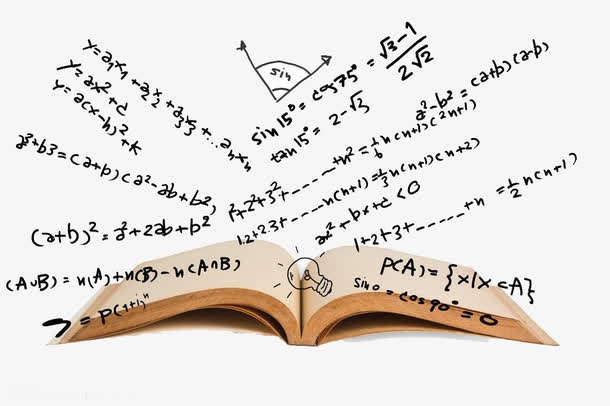 y=a₁x₁+a₂x₂+a₃x₃+...aₙxₙ
y=ax²+c
y=a(x-h)²+k
a³+b³=(a+b)(a²-ab+b²)
(a+b)²=a²+2ab+b²
(A∪B)=n(A)+n(B)-n(A∩B)
= P(1+i)ⁿ
sin
sin15°=cos75°=√3-1/2√2
tan15°=2-√3
a²-b²=(a+b)(a-b)
1²+2²+3²+......+n²=1/6n(n+1)(2n+1)
1.2+2.3+......n(n+1)=1/3n(n+1)(n+2)
ax²+bx+c<0
1+2+3+......+n=1/2n(n+1)
P(A)={x|x⊂A}
sin0=cos90°=0